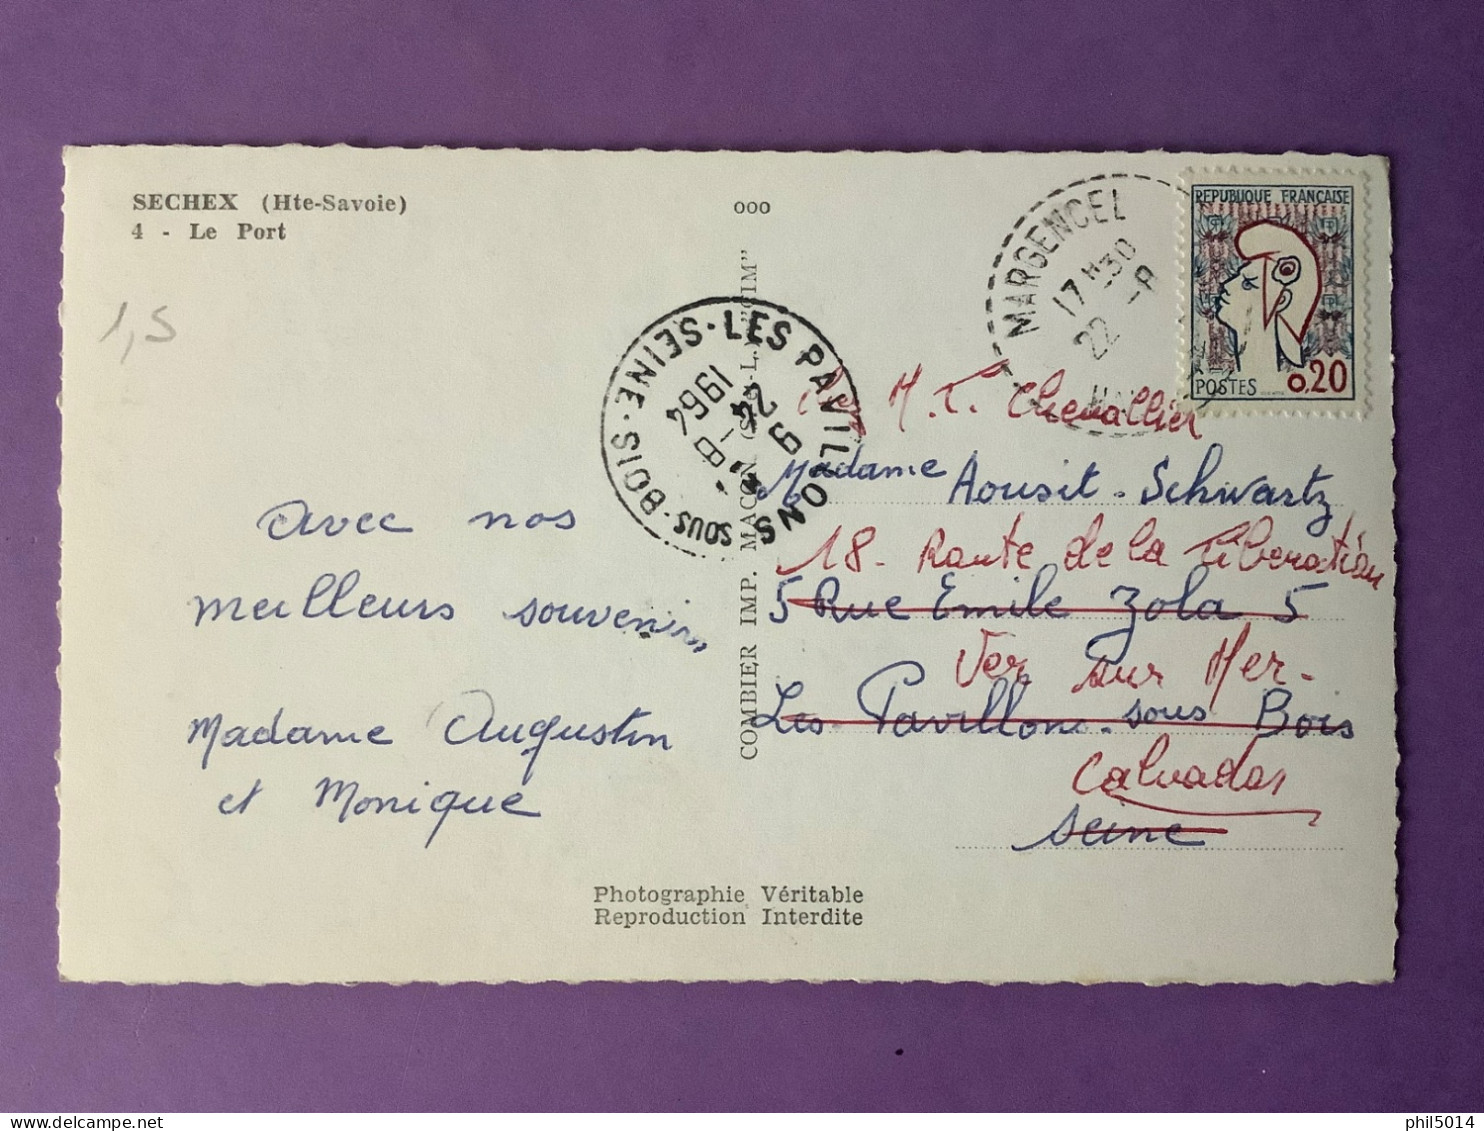 SECHEX (Hte-Savoie)
4 - Le Port
1,5
avec nos
meilleurs souvenirs
Madame Augustin
et Monique
ooo
COMBIER IMP. MACON (S.-&-L.) "CIM"
LES PAVILLONS-SOUS-BOIS·SEINE·
9
24 - 8
1964
MARGENCEL
17 H 30
22 -8
REPUBLIQUE FRANÇAISE
POSTES 0,20
M. L. Chevallier
Madame Aousit-Schwartz
18- Route de la Libération
5 Rue Emile Zola 5
Ver sur Mer-
Les Pavillons-sous Bois
Calvados
Seine
Photographie Véritable
Reproduction Interdite
phil5014